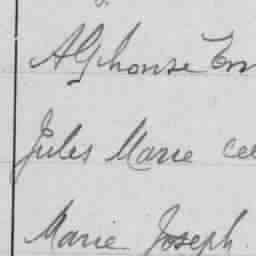 Alphonse Em
Jules Marie Cel
Marie Joseph.